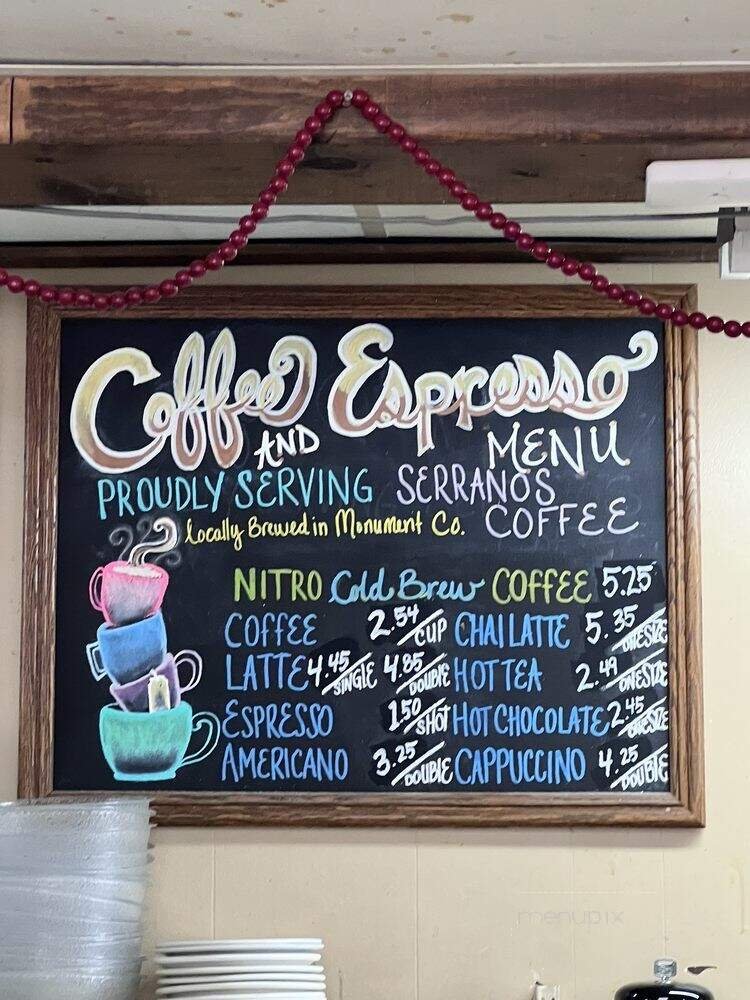 Coffee Espresso
AND MENU
PROUDLY SERVING SERRANOS
Locally Brewed in Monument Co. COFFEE
NITRO Cold Brew COFFEE 5.25
COFFEE 2.54/CUP CHAI LATTE 5.35/ONE SIZE
LATTE 4.45/SINGLE 4.85/DOUBLE HOT TEA 2.49/ONE SIZE
ESPRESSO 1.50/SHOT HOT CHOCOLATE 2.45/ONE SIZE
AMERICANO 3.25/DOUBLE CAPPUCCINO 4.25/DOUBLE
menupix